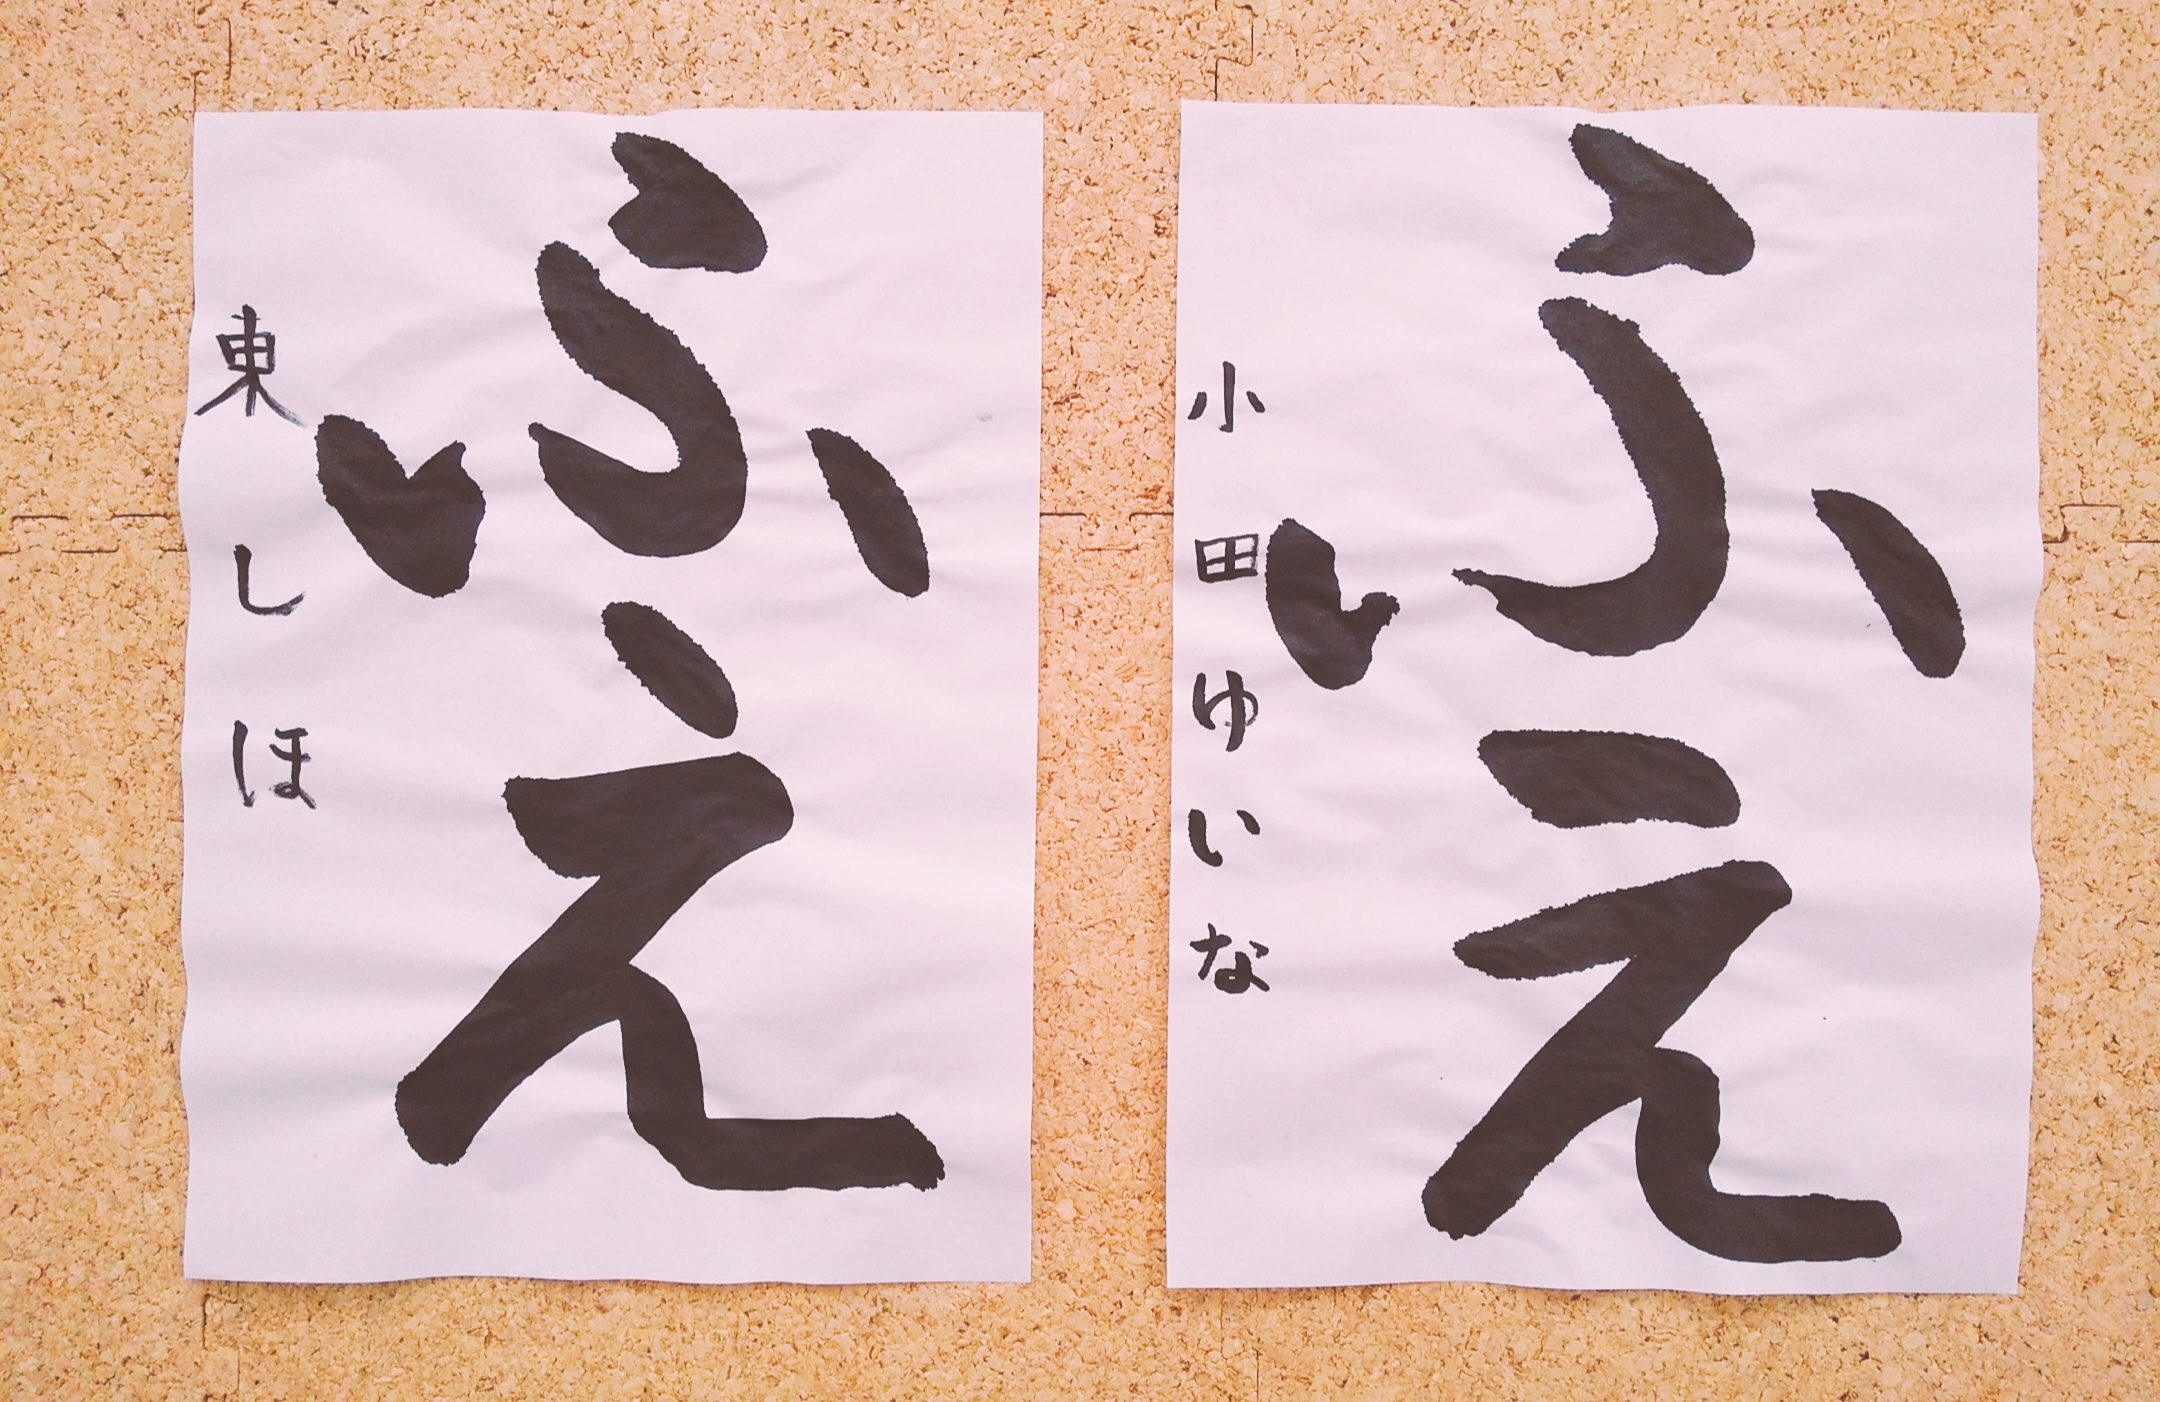 ふえ
小田ゆいな
ふえ
東しほ